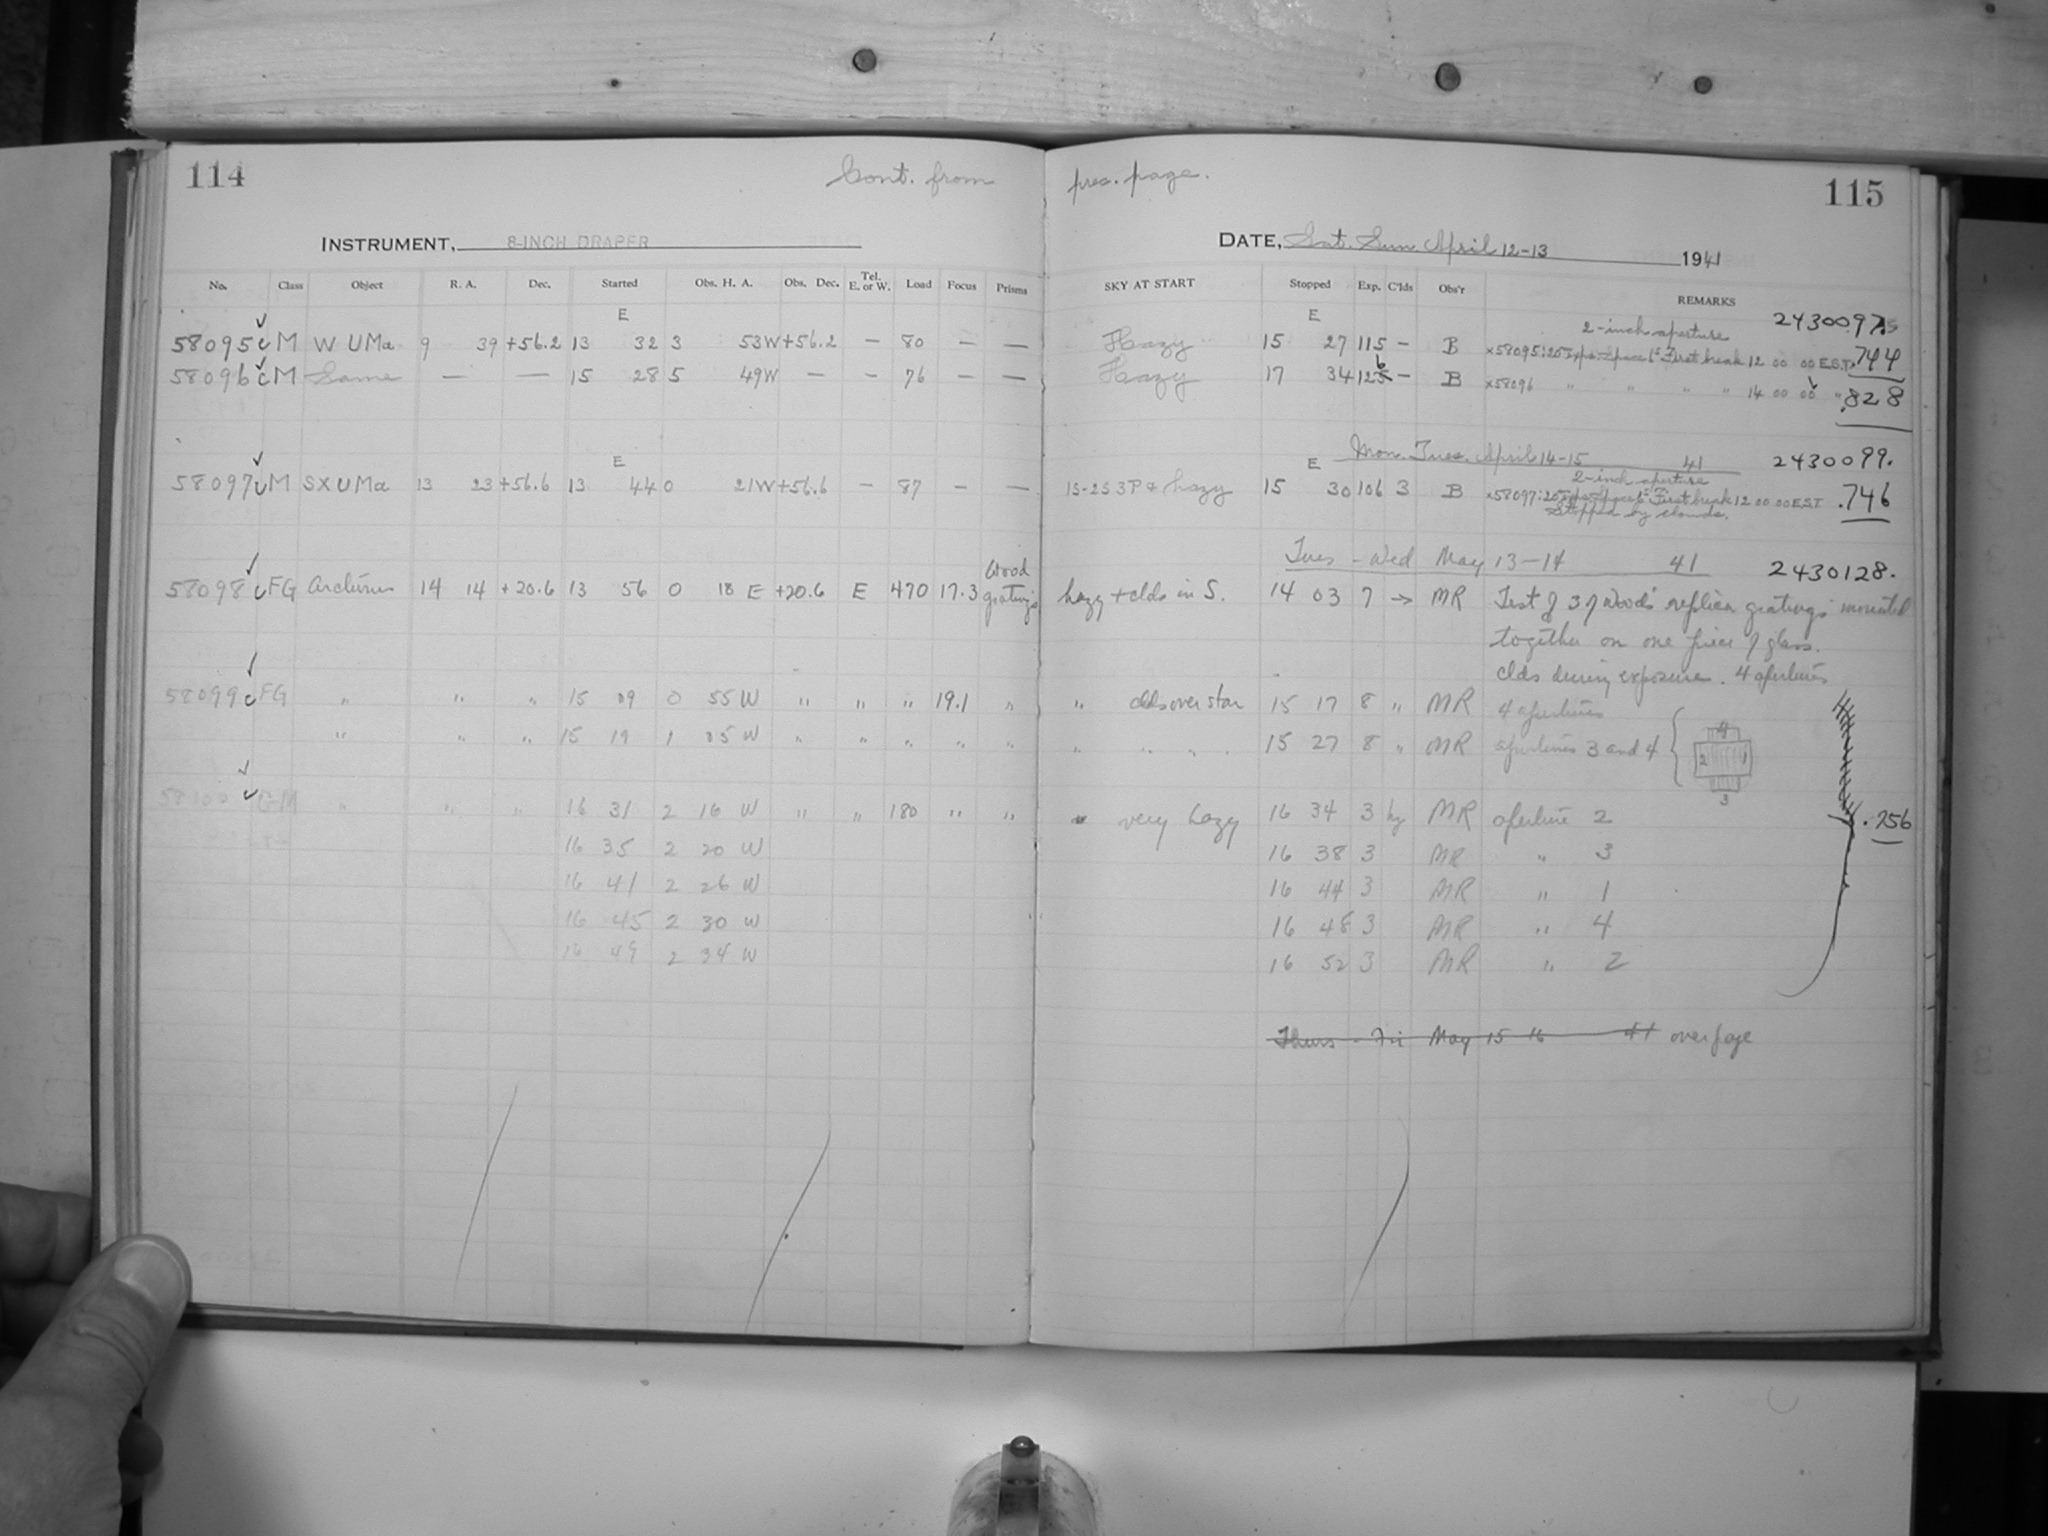 114 Cont. from prev. page. 115
INSTRUMENT, 8-INCH DRAPER DATE, Sat. Sun April 12-13 1941
No. Class Object R. A. Dec. Started Obs. H. A. Obs. Dec. Tel. E. or W. Load Focus Prisms SKY AT START Stopped Exp. C'lds Obs'r REMARKS
E E 2-inch aperture 2430097.
58095 c M W UMa 9 39 +56.2 13 32 3 53W +56.2 — 80 — — Hazy 15 27 115 — B x58095: 20 Exps. Space 1s First break 12 00 00 E.S.T. .744
58096 c M Same — — 15 28 5 49W — — 76 — — Hazy 17 34 126 — B x58096 " " " " 14 00 00 " .828
E E Mon. Tues. April 14-15 41 2430099.
2-inch aperture
58097 c M SX UMa 13 23 +56.6 13 44 0 21W +56.6 — 87 — — 15-25 3P & hazy 15 30 106 3 B x58097: 20 Exps. Space 1s First break 12 00 00 E.S.T .746
Stopped by clouds.
Tues - Wed May 13-14 41 2430128.
58098 c FG Arcturus 14 14 +20.6 13 56 0 18 E +20.6 E 470 17.3 Wood gratings hazy + clds in S. 14 03 7 → MR Test of 3 of Wood's replica gratings mounted
together on one piece of glass.
clds during exposure. 4 apertures
58099 c FG " " " 15 09 0 55 W " " " 19.1 " " clds over star 15 17 8 " MR 4 apertures
" " " 15 19 1 05 W " " " " " " " " 15 27 8 " MR apertures 3 and 4 { 4 2 1 3
58100 c G-M " " " 16 31 2 16 W " " 180 " " " very hazy 16 34 3 hy MR aperture 2 .756
16 35 2 20 W 16 38 3 MR " 3
16 41 2 26 W 16 44 3 MR " 1
16 45 2 30 W 16 48 3 MR " 4
16 49 2 34 W 16 52 3 MR " 2
Thurs - Fri May 15 16 41 over page